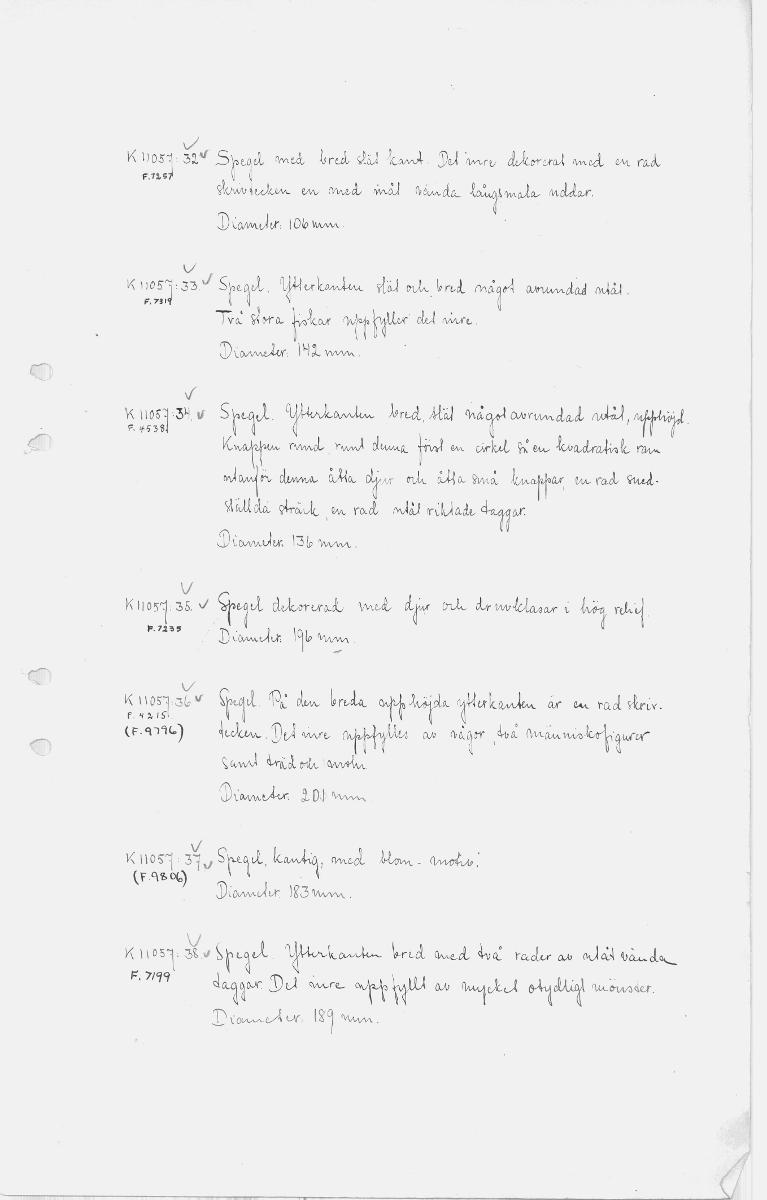 K 11057: 32 Spegel med bred slät kant. Det inre dekorerat med en rad
F.7257
skrivtecken en med inåt vända långsmala uddar.
Diameter: 106 mm.
K 11057: 33. Spegel. Ytterkanten slät och bred något avrundad utåt.
F.7319
Två stora fiskar uppfyller det inre.
Diameter: 142 mm.
K 11057: 34. Spegel. Ytterkanten bred, slät något avrundad utåt, upphöjd.
F.4538
Knappen rund, runt denna först en cirkel så en kvadratisk ram
utanför denna åtta djur och åtta små knappar, en rad sned-
ställda streck, en rad utåt riktade taggar.
Diameter: 136 mm.
K 11057: 35. Spegel dekorerad med djur och druvklasar i hög relief.
F.7235
Diameter: 196 mm.
K 11057: 36 Spegel. På den breda upphöjda ytterkanten är en rad skriv-
F.4215
(F.9796) tecken. Det inre uppfylles av vågor, två människofigurer
samt träd och moln
Diameter: 201 mm
K 11057: 37 Spegel, kantig, med blom- motiv.
(F.9806)
Diameter 183 mm.
K 11057: 38 Spegel. Ytterkanten bred med två rader av utåt vända
F.7199
taggar. Det inre uppfyllt av mycket otydligt mönster.
Diameter. 189 mm.